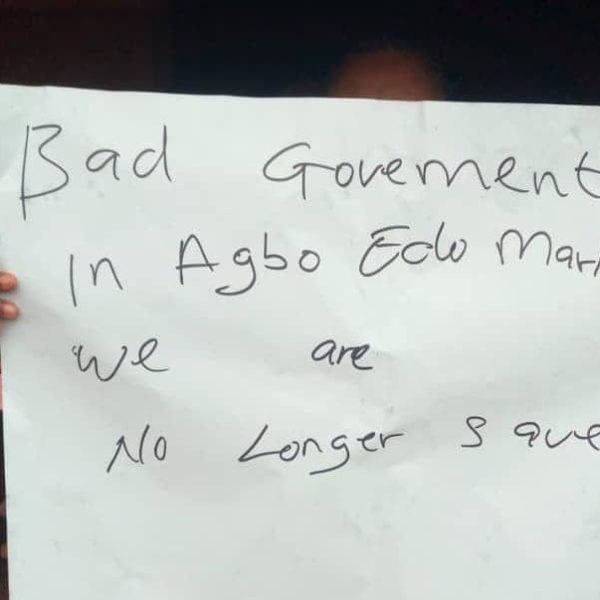 Bad Govement
In Agbo Edo Mark
we are
No Longer save